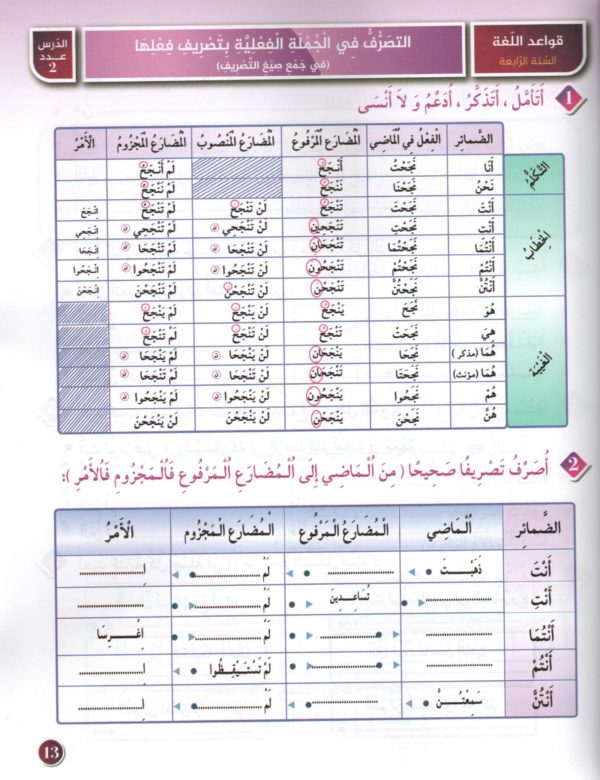 قواعد اللّغة
السّنة الرّابعة
التصَرُّفُ فِي الْجُمْلَةِ الْفِعْلِيَّةِ بِتَصْرِيفِ فِعْلِهَا
(فِي جَمْعِ صِيَغِ التَّصْرِيفِ)
الدّرس
عـدد
2
1 أَتَأَمَّلُ ، أَتَذَكَّرُ ، أُدَعِّمُ وَ لاَ أَنْسَى
الضَّمائِرُ الْفِعْلُ فِي الْمَاضِي الْمُضَارِعُ الْمَرْفُوعُ الْمُضَارِعُ الْمَنْصُوبُ الْمُضَارِعُ الْمَجْزُومُ الْأَمْرُ
التَّكَلُّمُ
أَنَا نَجَحْتُ أَنْجَحُ لَمْ أَنْجَحْ
نَحْنُ نَجَحْنَا نَنْجَحُ لَمْ نَنْجَحْ
الْخِطَابُ
أَنْتَ نَجَحْتَ تَنْجَحُ لَنْ تَنْجَحَ لَمْ تَنْجَحْ اِنْجَحْ
أَنْتِ نَجَحْتِ تَنْجَحِينَ لَنْ تَنْجَحِي لَمْ تَنْجَحِي اِنْجَحِي
أَنْتُمَا نَجَحْتُمَا تَنْجَحَانِ لَنْ تَنْجَحَا لَمْ تَنْجَحَا اِنْجَحَا
أَنْتُمْ نَجَحْتُمْ تَنْجَحُونَ لَنْ تَنْجَحُوا لَمْ تَنْجَحُوا اِنْجَحُوا
أَنْتُنَّ نَجَحْتُنَّ تَنْجَحْنَ لَنْ تَنْجَحْنَ لَمْ تَنْجَحْنَ اِنْجَحْنَ
الْغَيْبَةُ
هُوَ نَجَحَ يَنْجَحُ لَنْ يَنْجَحَ لَمْ يَنْجَحْ
هِيَ نَجَحَتْ تَنْجَحُ لَنْ تَنْجَحَ لَمْ تَنْجَحْ
هُمَا (مذكر) نَجَحَا يَنْجَحَانِ لَنْ يَنْجَحَا لَمْ يَنْجَحَا
هُمَا (مؤنث) نَجَحَتَا تَنْجَحَانِ لَنْ تَنْجَحَا لَمْ تَنْجَحَا
هُمْ نَجَحُوا يَنْجَحُونَ لَنْ يَنْجَحُوا لَمْ يَنْجَحُوا
هُنَّ نَجَحْنَ يَنْجَحْنَ لَنْ يَنْجَحْنَ لَمْ يَنْجَحْنَ
2 أُصَرِّفُ تَصْرِيفًا صَحِيحًا ( مِنَ الْمَاضِي إِلَى الْمُضَارِعِ الْمَرْفُوعِ فَالْمَجْزُومِ فَالْأَمْرِ ):
الضَّمائِر الْمَاضِي الْمُضَارِعُ الْمَرْفُوعُ الْمُضَارِعُ الْمَجْزُوم الْأَمْرُ
أَنْتَ ذَهَبْتَ .......... لَمْ .......... اِ..........
أَنْتِ .......... تُسَاعِدِينَ لَمْ .......... ..........
أَنْتُمَا .......... .......... لَمْ .......... اِغْرِسَا
أَنْتُمْ .......... .......... لَمْ تَسْتَيْقِظُوا اِ..........
أَنْتُنَّ سَمِعْتُنَّ .......... لَمْ .......... اِ..........
13